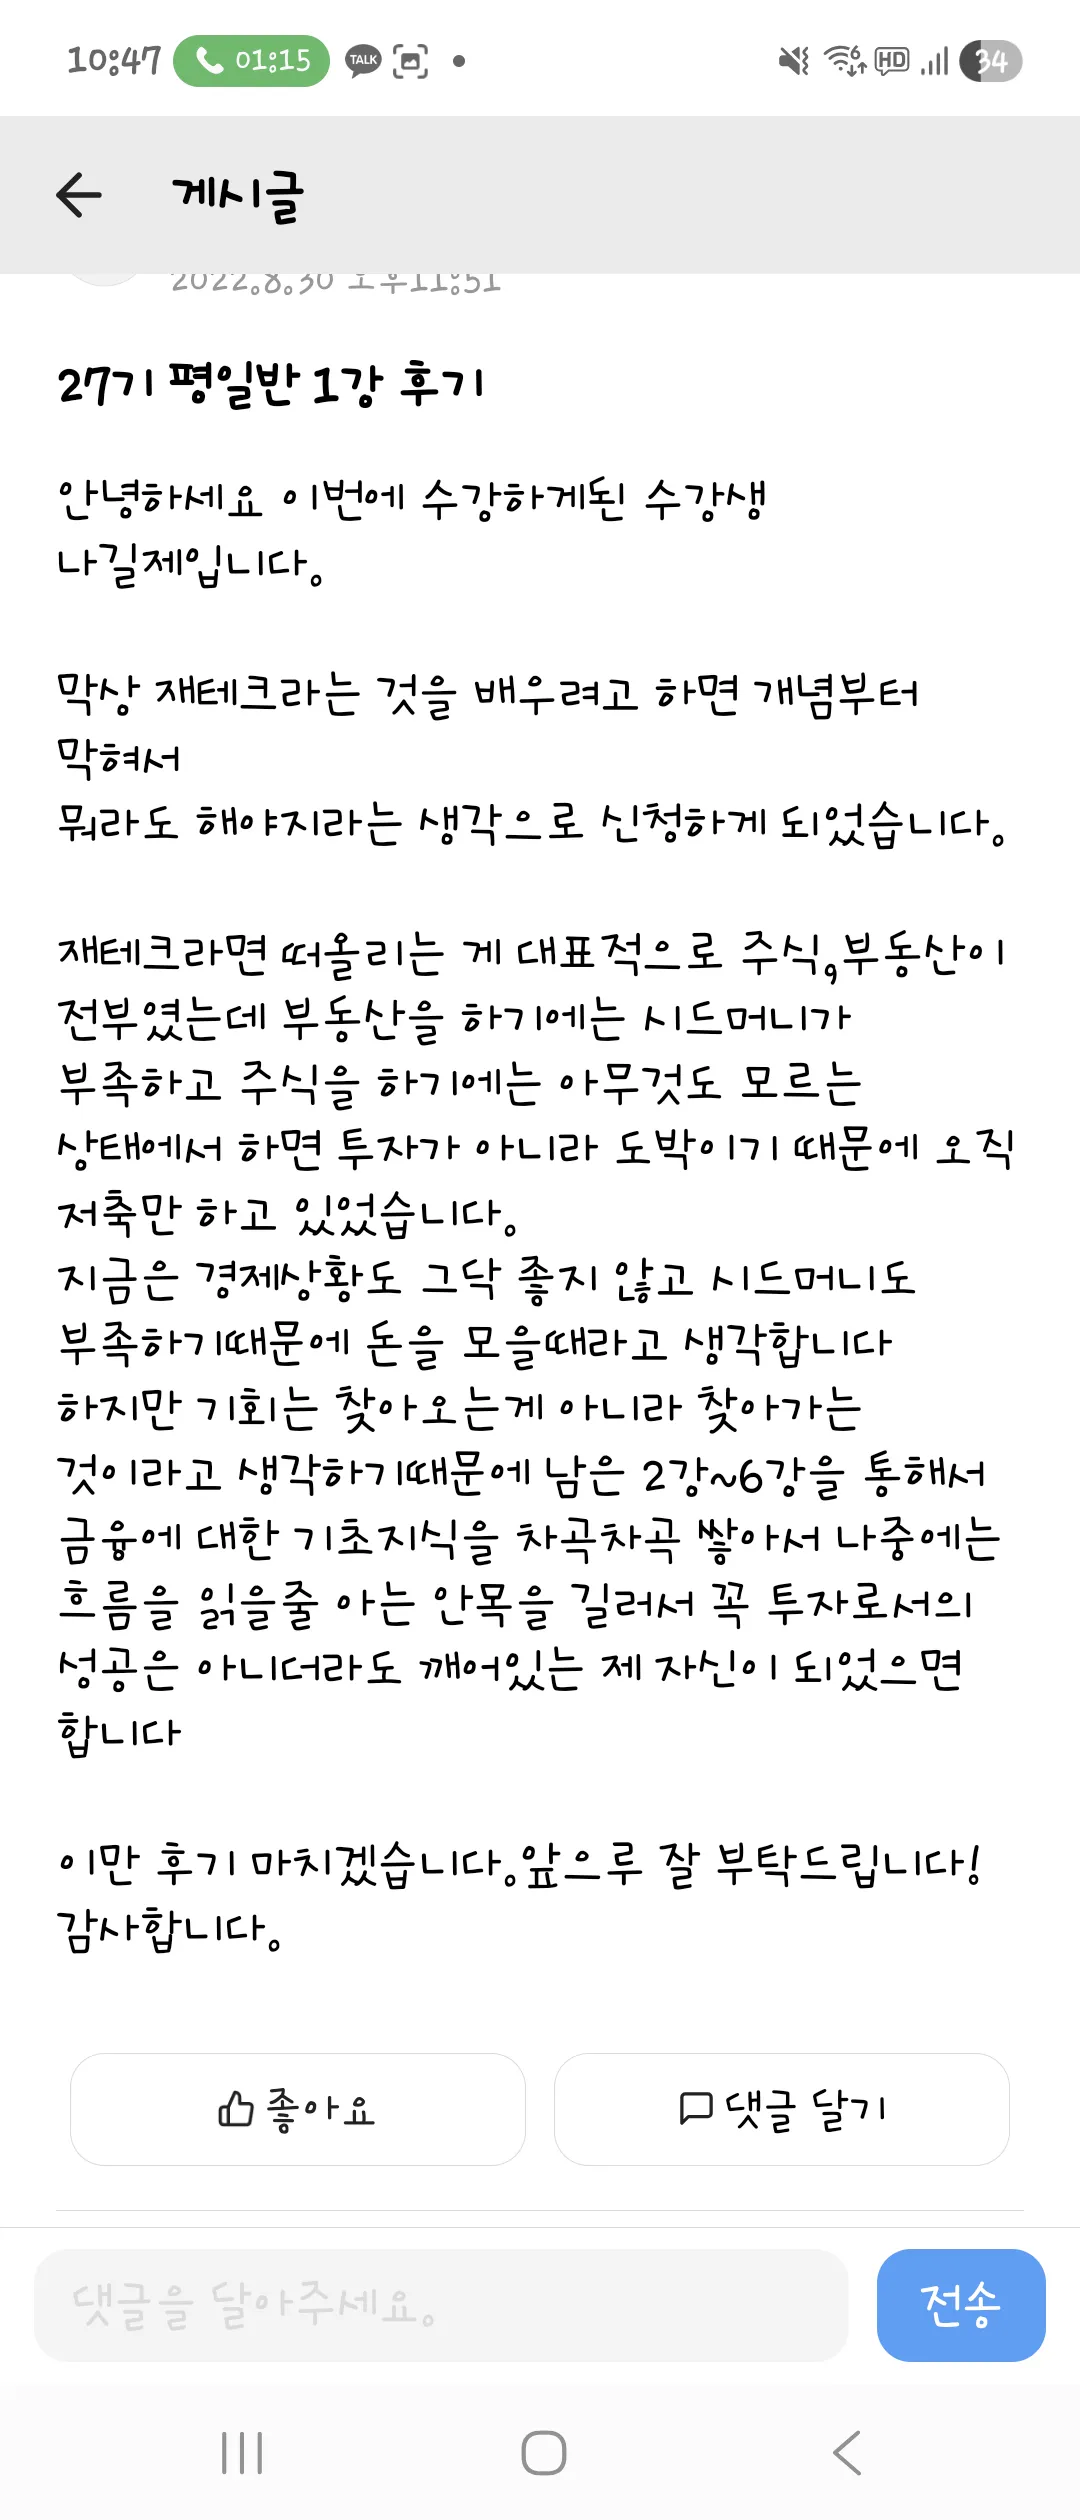 10:47 01:15 TALK 6 HD 34
게시글
2022.8.30 오후11:51
27기 평일반 1강 후기
안녕하세요 이번에 수강하게된 수강생
나길제입니다.
막상 재테크라는 것을 배우려고 하면 개념부터
막혀서
뭐라도 해야지라는 생각으로 신청하게 되었습니다.
재테크라면 떠올리는 게 대표적으로 주식,부동산이
전부였는데 부동산을 하기에는 시드머니가
부족하고 주식을 하기에는 아무것도 모르는
상태에서 하면 투자가 아니라 도박이기 때문에 오직
저축만 하고 있었습니다.
지금은 경제상황도 그닥 좋지 않고 시드머니도
부족하기때문에 돈을 모을때라고 생각합니다
하지만 기회는 찾아오는게 아니라 찾아가는
것이라고 생각하기때문에 남은 2강~6강을 통해서
금융에 대한 기초지식을 차곡차곡 쌓아서 나중에는
흐름을 읽을줄 아는 안목을 길러서 꼭 투자로서의
성공은 아니더라도 깨어있는 제 자신이 되었으면
합니다
이만 후기 마치겠습니다.앞으루 잘 부탁드립니다!
감사합니다.
좋아요 댓글 달기
댓글을 달아주세요. 전송